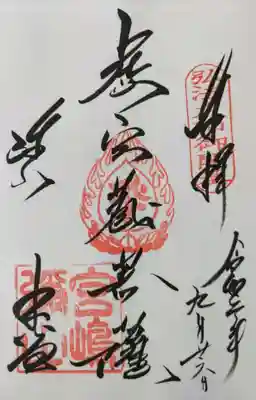 奉拝
令和二年
九月廿六日
虚空蔵菩薩
弥山
本堂
宮嶋
彌山